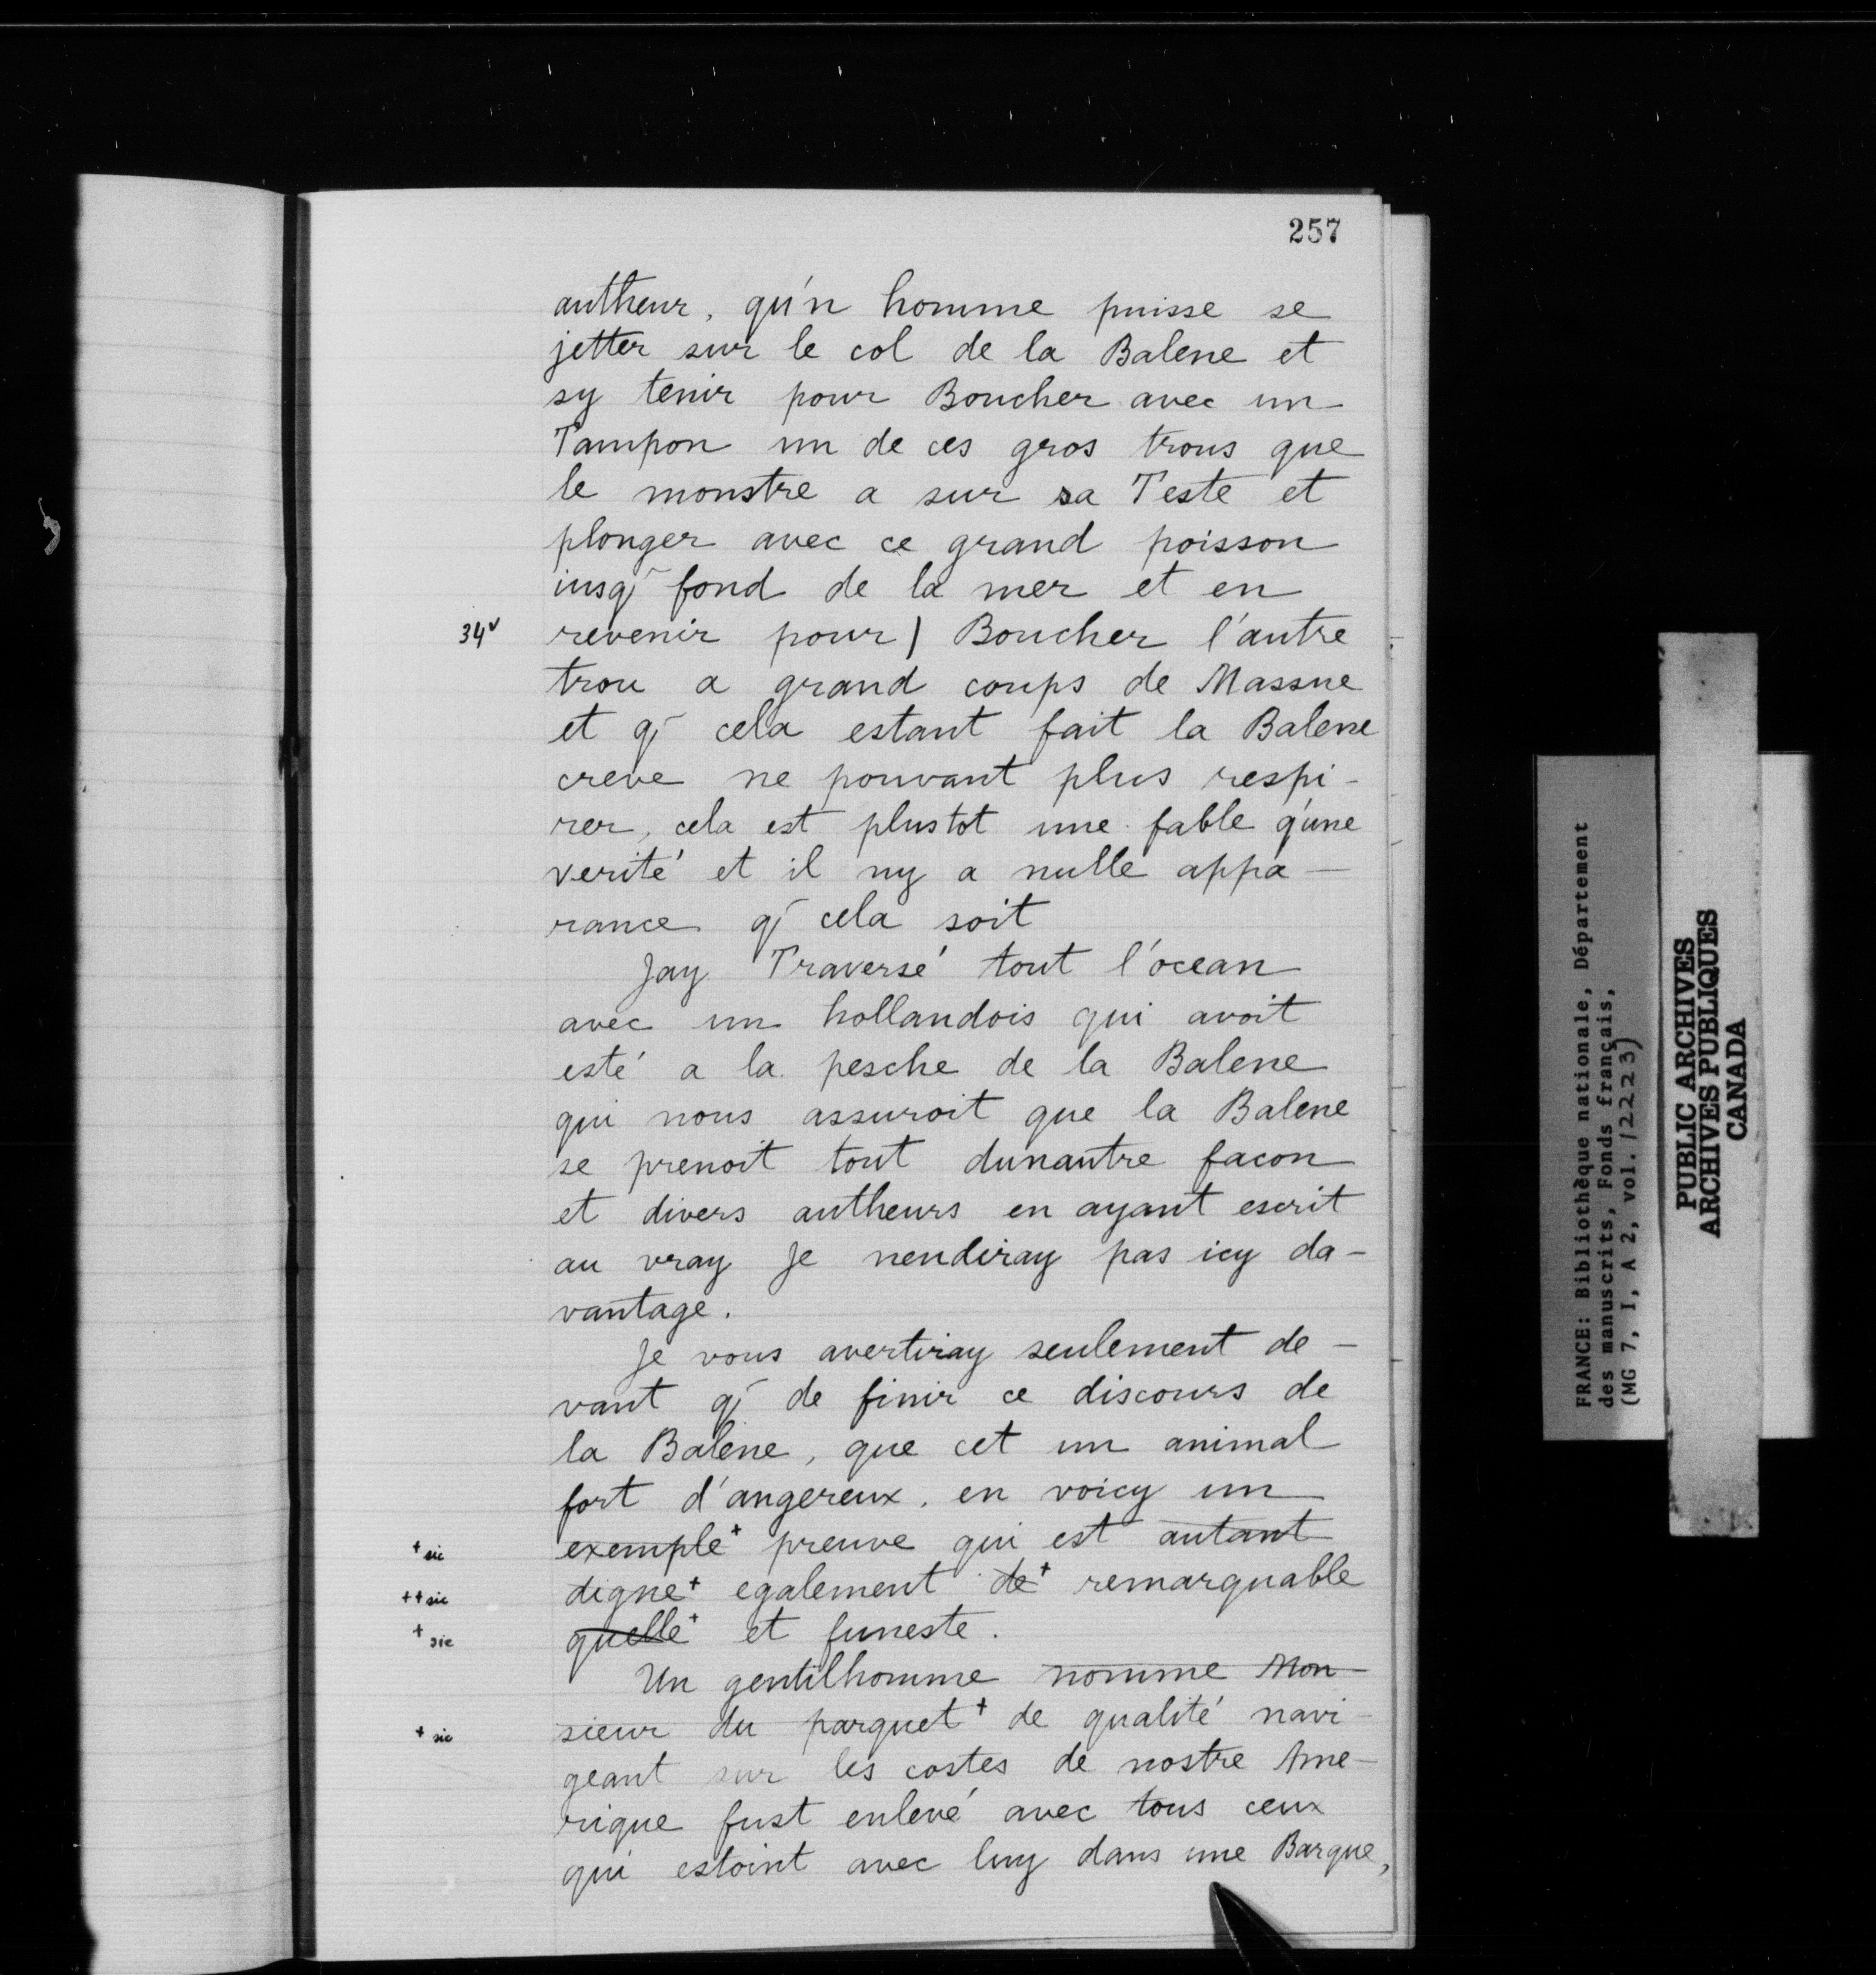 257
autheur, qu'n homme puisse se
jetter sur le col de la Balene et
sy tenir pour Boucher avec un
Tampon un de ces gros trous que
le monstre a sur sa Teste et
plonger avec ce grand poisson
iusq̄ fond de la mer et en
34v revenir pour) Boucher l'autre
trou a grand coups de Massue
et q̄ cela estant fait la Balene
creve ne pouvant plus respi-
rer, cela est plustot une fable q'une
verité et il ny a nulle appa-
rance q̄ cela soit
Jay Traversé tout l'ocean
avec un hollandois qui avoit
esté a la pesche de la Balene
qui nous assuroit que la Balene
se prenoit tout dunautre facon
et divers autheurs en ayant escrit
au vray Je nendiray pas icy da-
vantage.
Je vous avertiray seulement de-
vant q̄ de finir ce discours de
la Balene, que cet un animal
fort d'angereux, en voicy un
+sic exemple+ preuve qui est autant
++sic digne+ egalement de+ remarquable
+sic quelle+ et funeste.
Un gentilhomme nomme Mon-
+sic sieur du parquet+ de qualité navi-
geant sur les costes de nostre Ame-
rique fust enlevé avec tous ceux
qui estoint avec luy dans une Barque,
FRANCE: Bibliothèque nationale, Département
des manuscrits, Fonds français,
(MG 7, I, A 2, vol. 12223)
PUBLIC ARCHIVES
ARCHIVES PUBLIQUES
CANADA